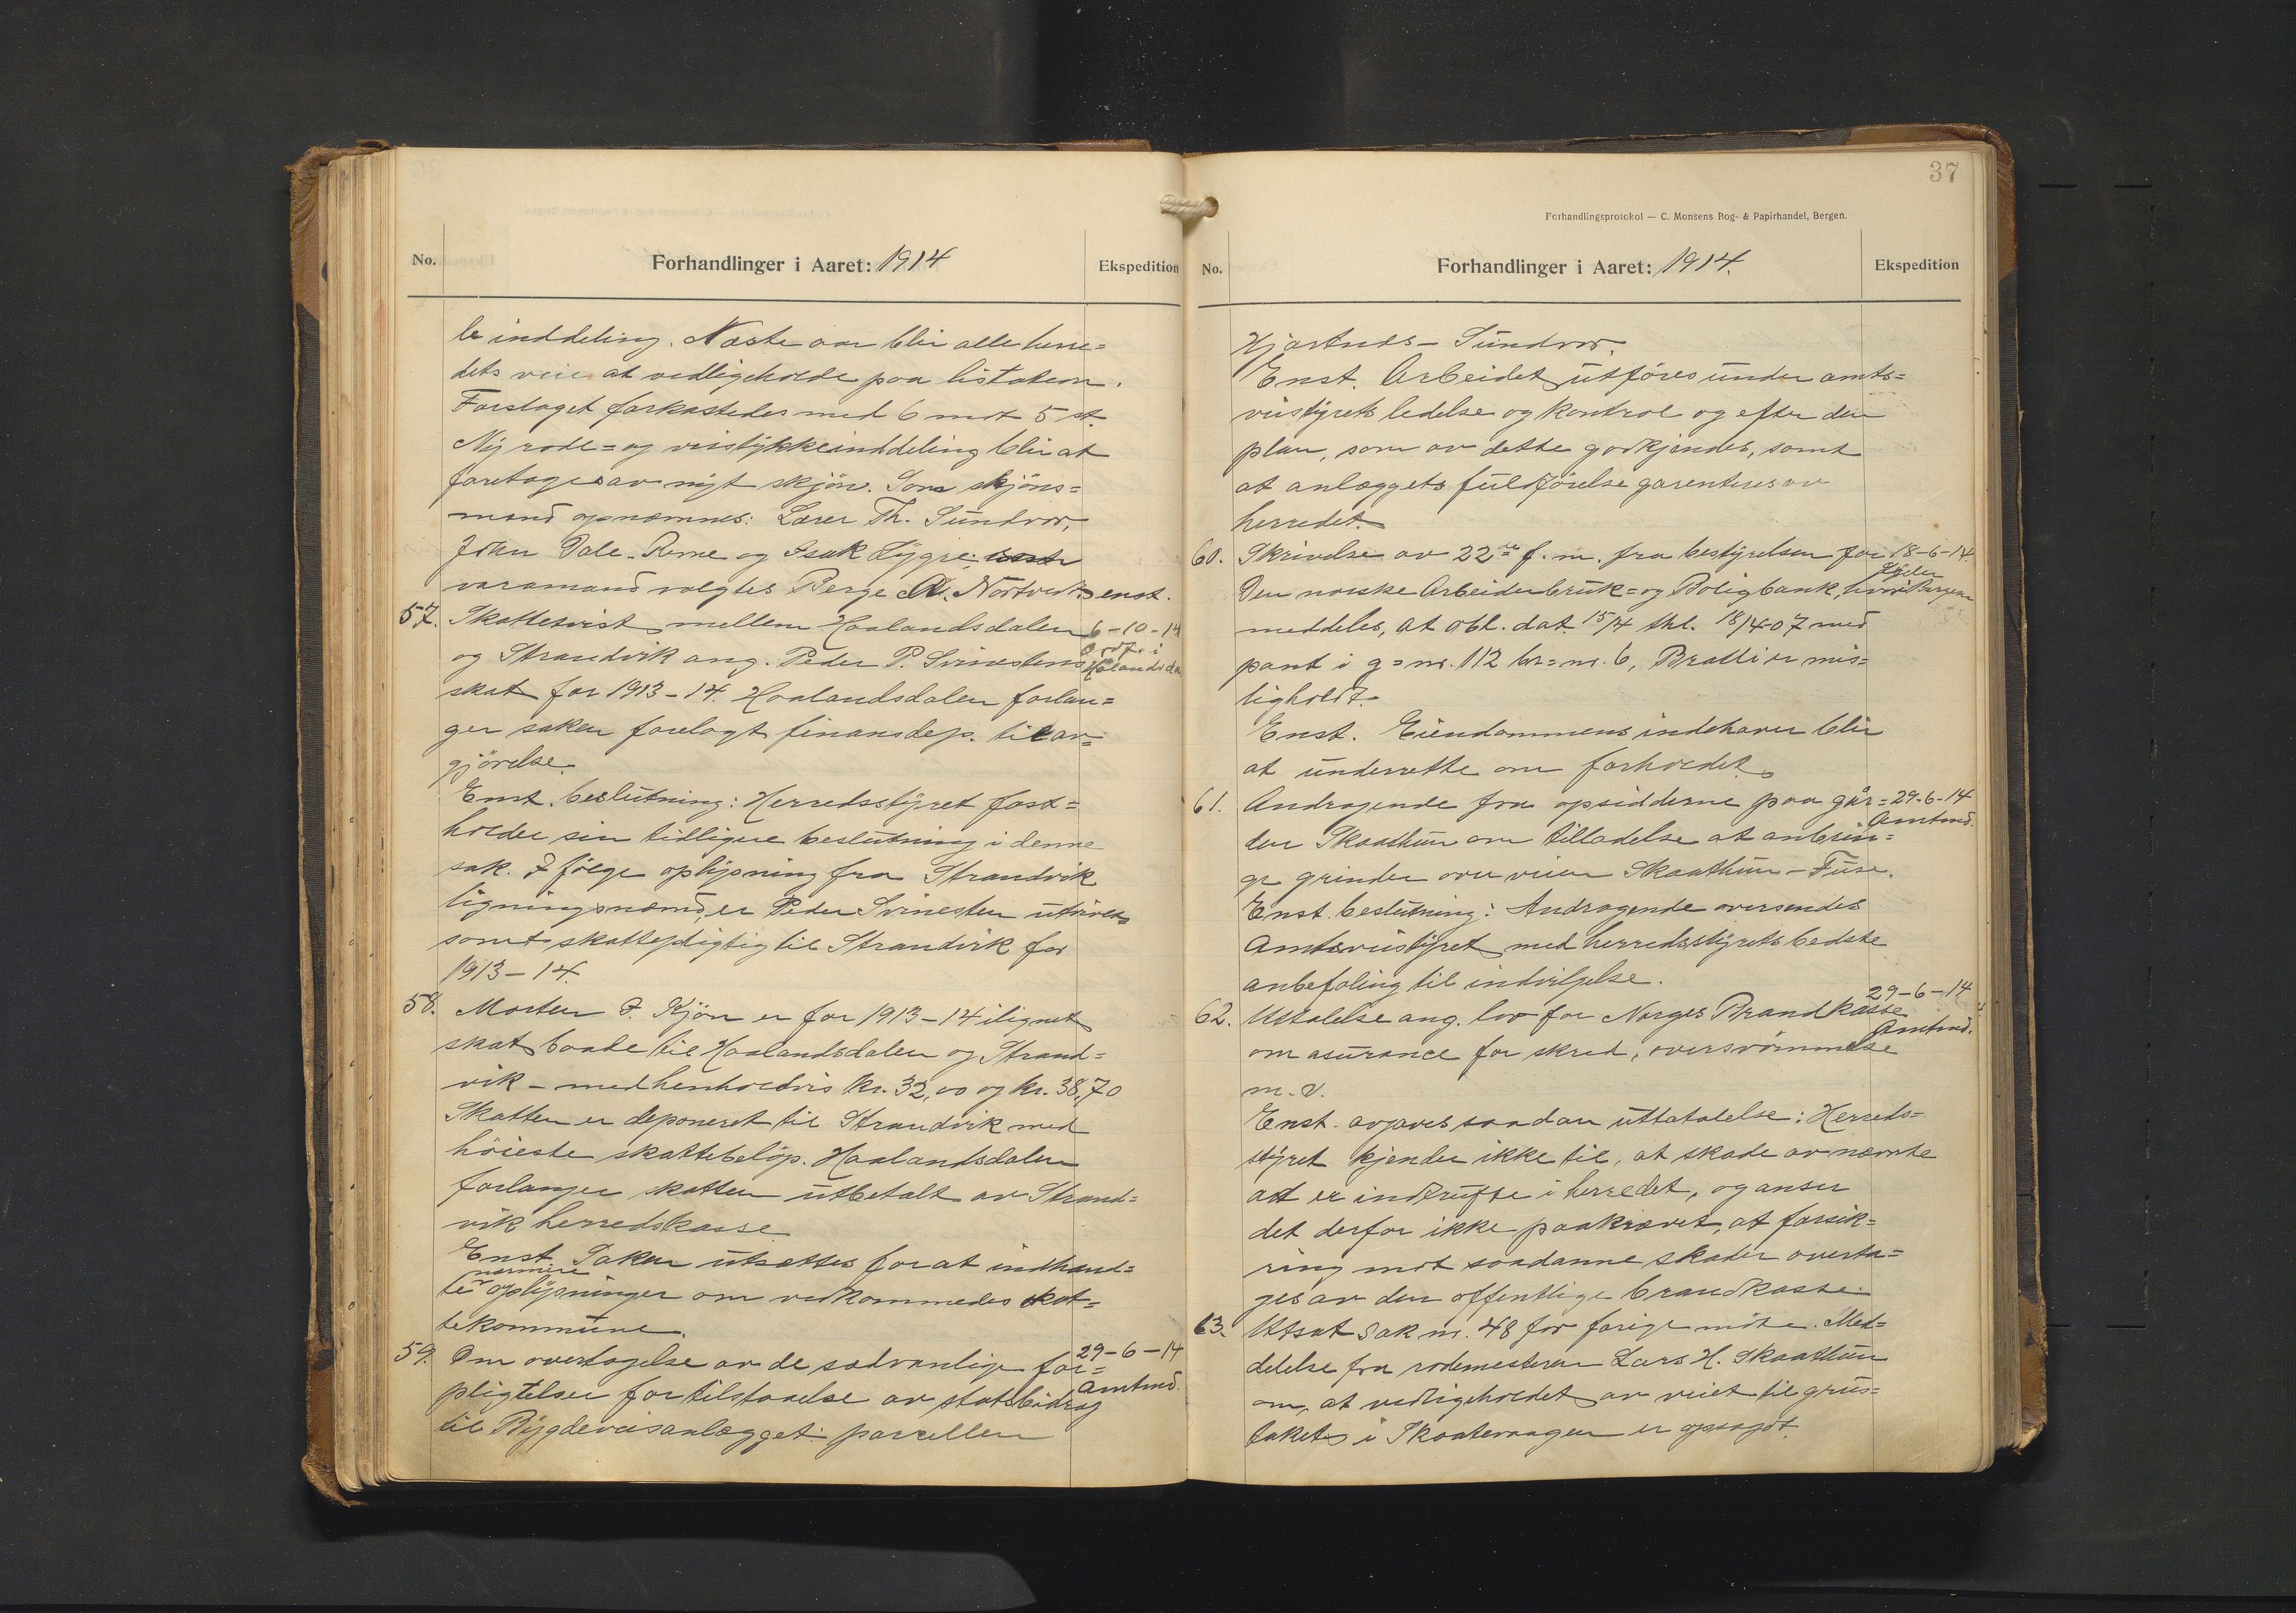 No.
Forhandlinger i Aaret: 1914
Ekspedition
le inddeling. Næste aar blir alle herre=
dets veie at vedligeholde paa listation.
Forslaget forkastedes med 6 mot 5 st.
Ny rode= og veistykkeinddeling blir at
foretages av nyt skjön. Som skjöns=
mænd opnæmnes: Lærer Th. Sundvor,
John Dale-Reme og Isak Lygre.
varamand valgtes Berge A. Nortvedt enst.
57. Skattetvist mellem Haalandsdalen 6-10-14
og Strandvik ang. Peder P. Svinestens Ordf. i Hålandsdalen
skat for 1913-14. Haalandsdalen forlan=
ger saken forelagt finansdep. til av=
gjörelse.
Enst. beslutning: Herredsstyret fast=
holder sin tidligere beslutning i denne
sak. Ifölge oplysning fra Strandvik
ligningsnæmd, er Peder Svinesten utvivl=
somt skattepligtig til Strandvik for
1913-14.
58. Morten J. Kjön er for 1913-14 ilignet
skat baade til Haalandsdalen og Strand=
vik - med henholdvis kr. 32,00 og kr. 38,70
Skatten er deponeret til Strandvik med
höieste skattebelöp. Haalandsdalen
forlanger skatten utbetalt av Strand=
vik herredskasse
Enst. Saken utsættes for at indhand=
te nærmere oplysninger om vedkommedes skat=
tekommune.
59. Om overtagelse av de sædvanlige for= 29-6-14
pligtelser for tilstaaelse av statsbidrag Amtmd.
til Bygdeveisanlægget: parcellen
37
Forhandlingsprotokol — C. Monsens Bog- & Papirhandel, Bergen.
No.
Forhandlinger i Aaret: 1914.
Ekspedition
Hjartnes - Sundvor.
Enst. Arbeidet utföres under amts=
veistyrets ledelse og kontrol og efter den
plan, som av dette godkjendes, samt
at anlæggets fuldförelse garenteres av
herredet.
60. Skrivelse av 22de f. m. fra bestyrelsen for 18-6-14.
Den norske Arbeiderbruk= og Boligbank, hvori Bergen
meddeles, at obl. dat. 15/4 thl. 18/4-07 med
pant i g=nr. 112 br=nr. 6, Bratli er mis=
ligholdt.
Enst. Eiendommens indehaver blir
at underrette om forholdet.
61. Andragende fra opsidderne paa går= 29-6-14
den Skaathun om tilladelse at anbrin= Amtmd.
ge grinder over veien Skaathun - Fuse.
Enst. beslutning: Andragende oversendes
Amtsveistyret med herredsstyrets bedste
anbefaling til indvilgelse.
62. Uttalelse ang. lov for Norges Brandkasse 29-6-14
om asurance for skred, oversvömmelse Amtmd.
m. v.
Enst. avgaves saadan uttatalelse: Herreds=
styret kjender ikke til, at skade av nævnte
art er indtruffe i herredet, og anser
det derfor ikke paakrævet, at forsik=
ring mot saadanne skader overta=
ges av den offentlige brandkasse.
63. Utsat sak nr. 48 for forige möte. Med=
delelse fra rodemesteren Lars H. Skaathun
om, at vedligeholdet av veiet til grus=
taket i Skaatevaagen er opsagdt.